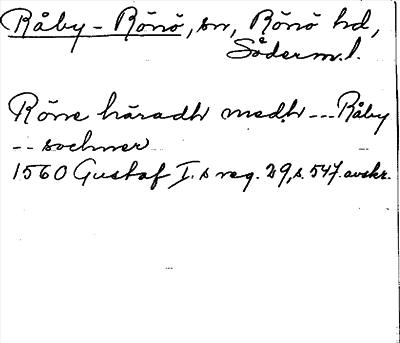 Råby - Rönö, sn, Rönö hd,
Söderm. l.
Röne häradh medh --- Råby
-- sochner
1560 Gustaf I.s reg. 29, s. 547. avskr.